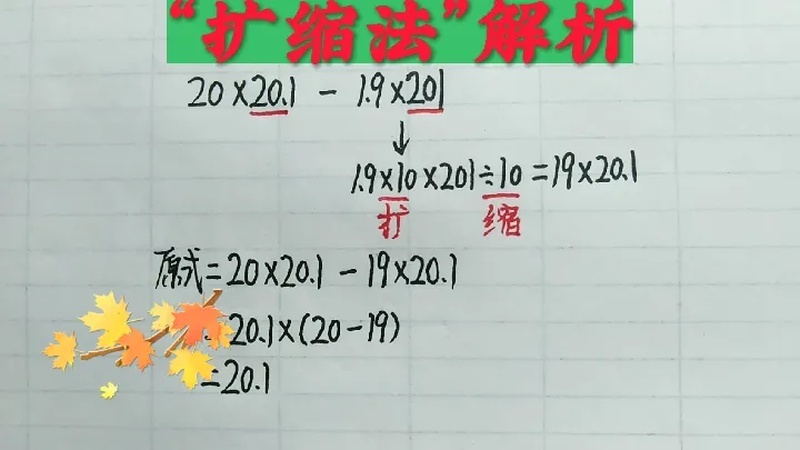 “扩缩法”解析
20×20.1 - 1.9×201
↓
1.9×10×201÷10=19×20.1
扩 缩
原式=20×20.1-19×20.1
=20.1×(20-19)
=20.1